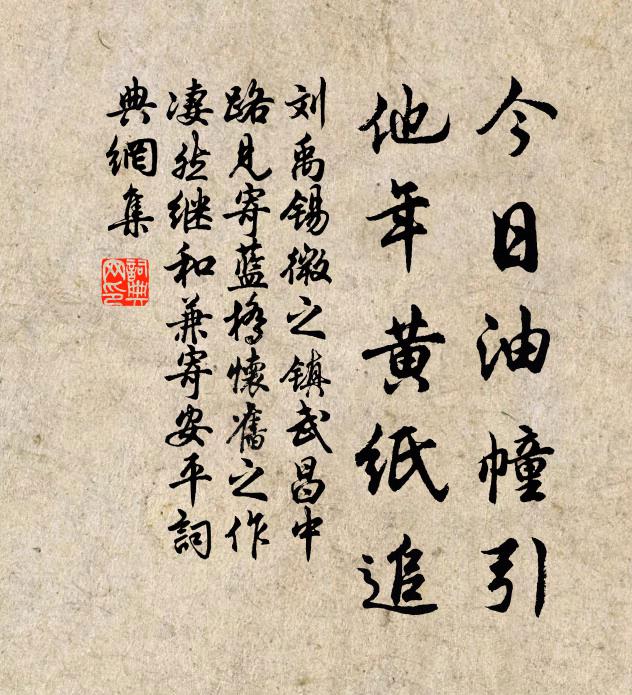 今日油幢引
他年黄紙追
刘禹锡微之镇武昌中
路見寄藍橋懷舊之作
凄然继和兼寄安平詞
典網集
詞典網印